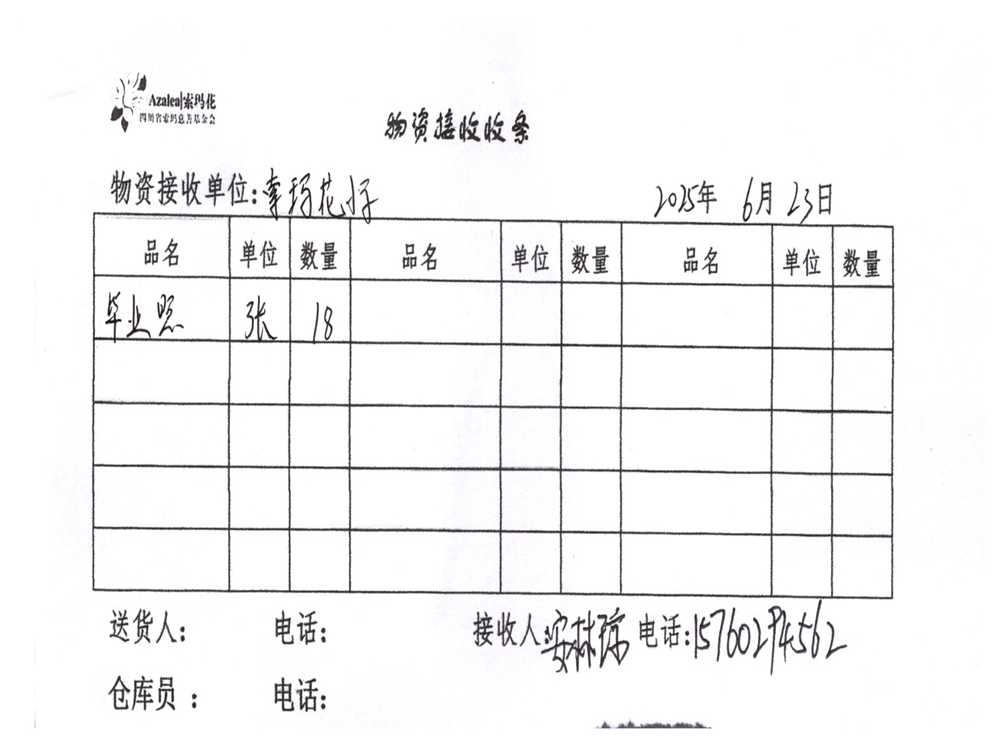 Azalea|索玛花
四川省索玛慈善基金会
物资接收收条
物资接收单位:索玛花小学
2025年 6月 23日
品名 单位 数量 品名 单位 数量 品名 单位 数量
毕业照 张 18
送货人: 电话: 接收人:安林琼 电话:15760294562
仓库员 : 电话: